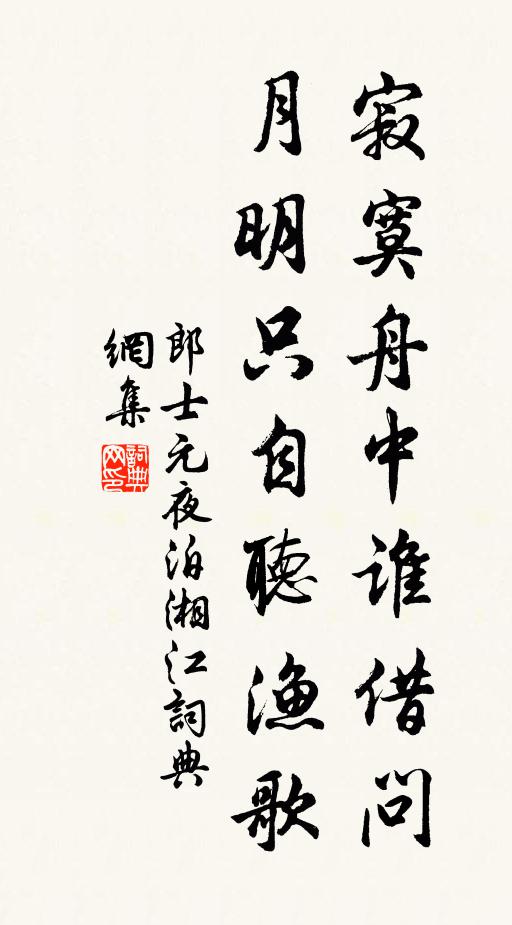 寂寞舟中誰借問
月明只自聽漁歌
郎士元夜泊湘江詞典
網集
詞典网印